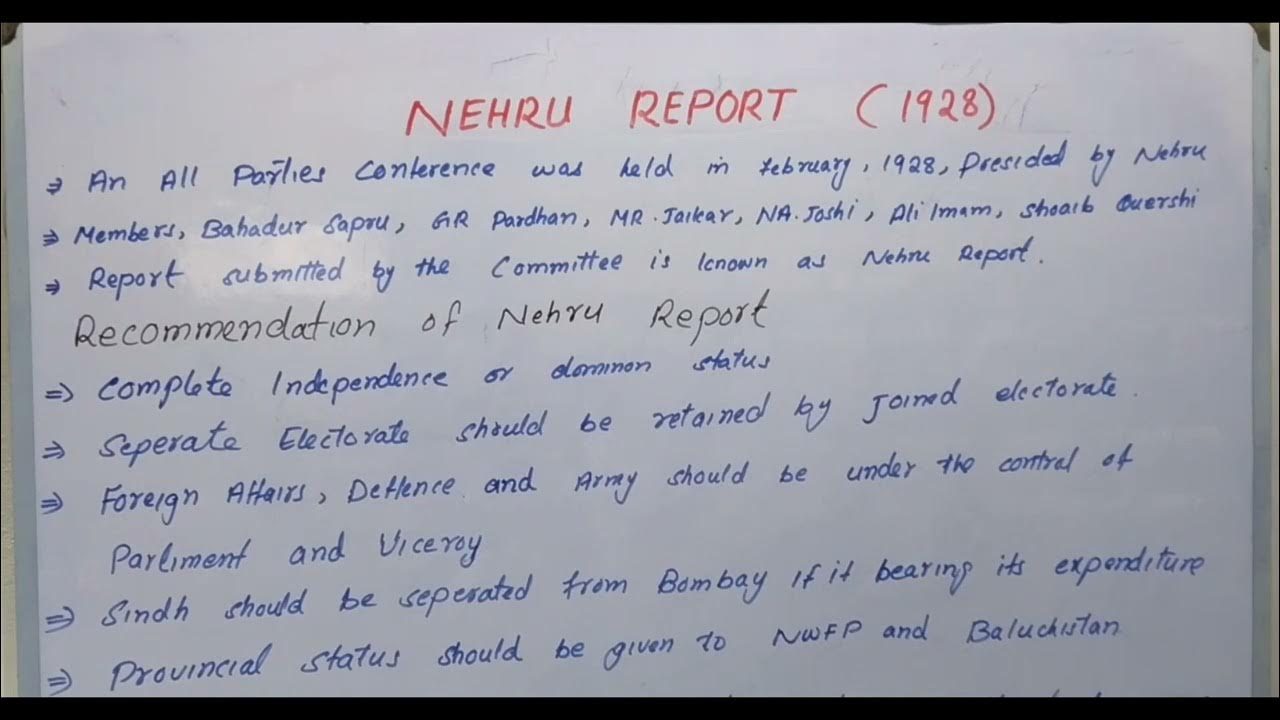 NEHRU REPORT (1928)
⇒ An All Parties Conference was held in february, 1928, Presided by Nehru
⇒ Members, Bahadur Sapru, GR Pardhan, MR. Jaikar, NA. Joshi, Ali Imam, Shoaib Quershi
⇒ Report submitted by the Committee is known as Nehru Report.
Recommendation of Nehru Report
⇒ Complete Independence or dominon status
⇒ Seperate Electorate should be retained by Joined electorate.
⇒ Foreign Affairs, Deffence and Army should be under the control of
Parliment and Viceroy
⇒ Sindh should be seperated from Bombay if it bearing its expenditure
⇒ Provincial status should be given to NWFP and Baluchistan